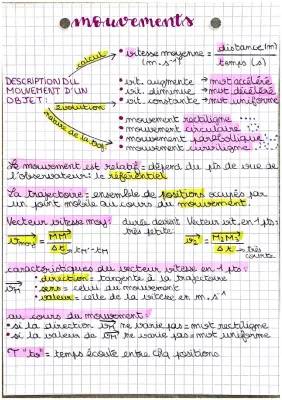 mouvements
calcul
• vitesse moyenne = distance (m)
(m.s⁻¹) temps (s)
DESCRIPTION DU
MOUVEMENT D'UN
OBJET :
évolution
• vit. augmente → mvt accéléré
• vit. diminue → mvt décéléré
• vit. constante → mvt uniforme
nature de la traj.
• mouvement rectiligne
• mouvement circulaire
• mouvement parabolique
• mouvement curviligne
Le mouvement est relatif : dépend du pts de vue de
l'observateur : le référentiel
La trajectoire : ensemble de positions occupés par
un point mobile au cours du mouvement.
Vecteur vitesse moy :
durée devient
très petite :
Vecteur vit. en 1 pts :
caractéristiques du vecteur vitesse en 1 pts :
• direction : tangente à la trajectoire
• sens = celui du mouvement
• valeur = celle de la vitesse en m.s⁻¹
au cours du mouvement
• si la direction ne varie pas = mvt rectiligne
• si la valeur de ne varie pas = mvt uniforme
= temps écoulé entre chq positions